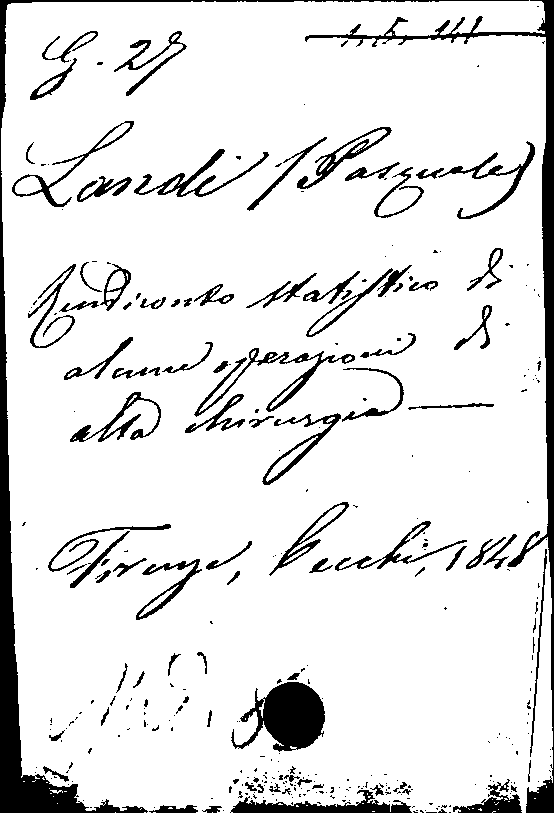 G. 27 1. 5. 141
Landi (Pasquale)
Rendiconto statistico di
alcune operazioni di
alta chirurgia —
Firenze, Cecchi, 1848